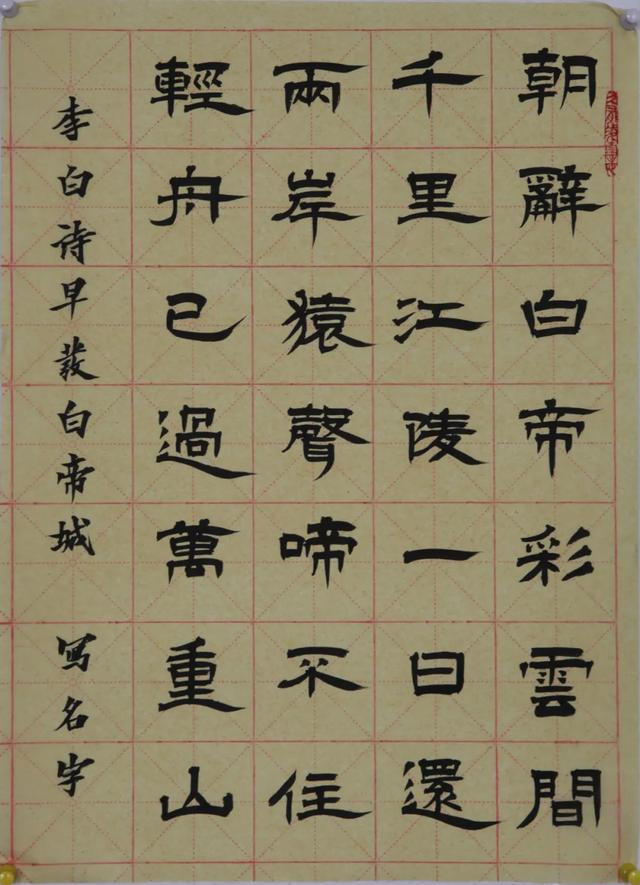 朝辭白帝彩雲間
千里江陵一日還
兩岸猿聲啼不住
輕舟已過萬重山
李白诗早發白帝城 写名字